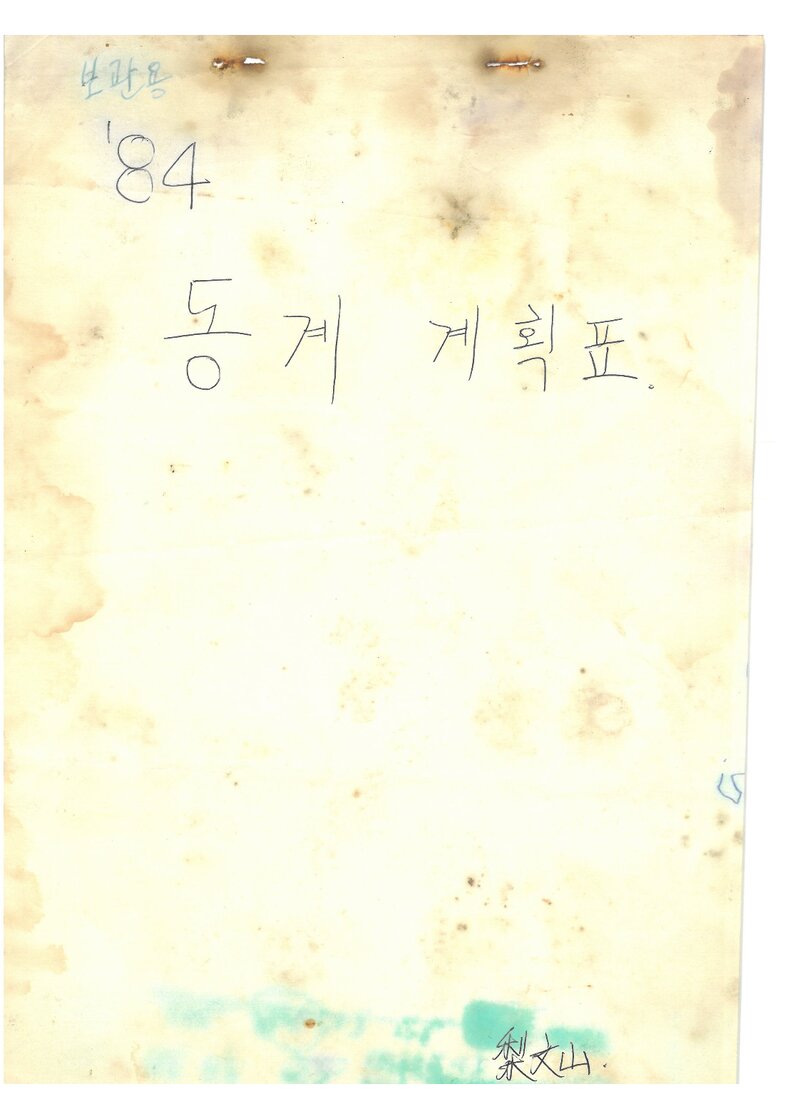 보관용
'84
동계 계획표.
梨文山.